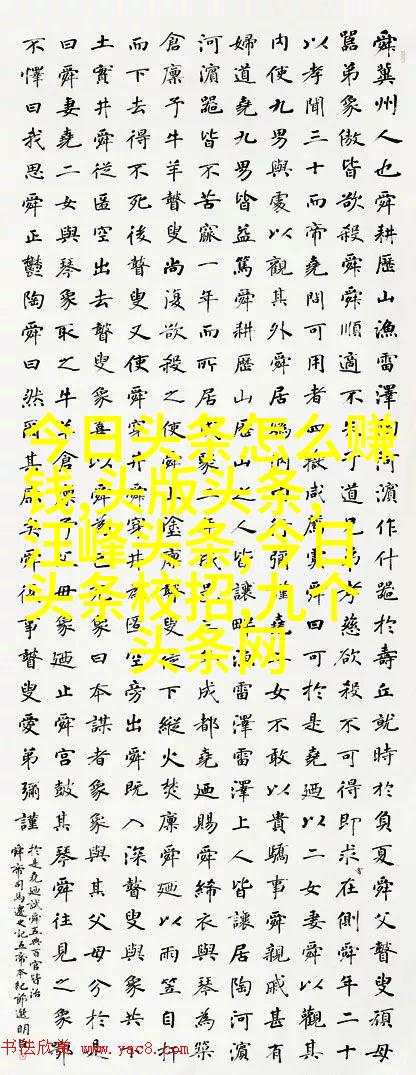 舜冀州人也舜耕歷山漁雷澤陶河濱作什器於壽丘就時於負夏舜父瞽叟頑母
嚚弟象傲皆欲殺舜舜順適不失子道兄弟孝慈欲殺不可得即求在側舜年二十
以孝聞三十而帝堯問可用者四嶽咸薦虞舜曰可於是堯廼以二女妻舜以觀其
內使九男與處以觀其外舜居媯汭內行彌謹堯二女不敢以貴驕事舜親戚甚有
婦道堯九男皆益篤舜耕歷山歷山之人皆讓畔漁雷澤雷澤上人皆讓居陶河濱
河濱器皆不苦窳一年而所居成聚二年成邑三年成都堯廼賜舜絺衣與琴為築
倉廩予牛羊瞽叟尚復欲殺之使舜上塗廩瞽叟從下縱火焚廩舜廼以兩笠自扞
而下去得不死後瞽叟又使舜穿井舜穿井為匿空旁出舜既入深瞽叟與象共下
土實井舜從匿空出去瞽叟象喜以舜為已死象曰本謀者象象與其父母分於是
曰舜妻堯二女與琴象取之牛羊倉廩予父母象廼止舜宮鼓其琴舜往見之象鄂
不懌曰我思舜正鬱陶舜曰然爾其庶矣舜復事瞽叟愛弟彌謹
於是堯廼試舜五典百官皆治
舜帝司馬遷史記五帝本紀節選
今日头条怎么赚
钱,头版头条,
汪峰头条,今日
头条校招,九个
头条网
书法欣赏 www.yac8.com